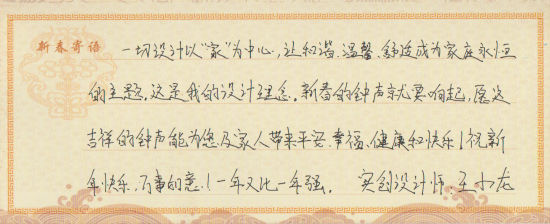 新春寄语
一切设计以"家"为中心，让和谐、温馨、舒适成为家庭永恒
的主题，这是我的设计理念。新春的钟声就要响起，愿这
吉祥的钟声能为您及家人带来平安、幸福、健康和快乐！祝新
年快乐，万事如意！一年又比一年强。 实创设计师 王小龙